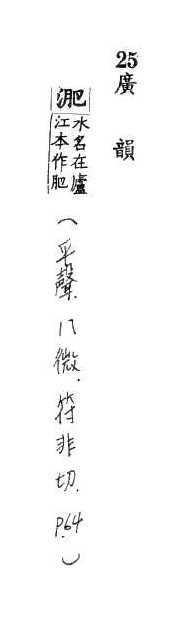 25廣韻
淝
水名在廬
江本作肥
(平聲.八微.符非切.P.64)